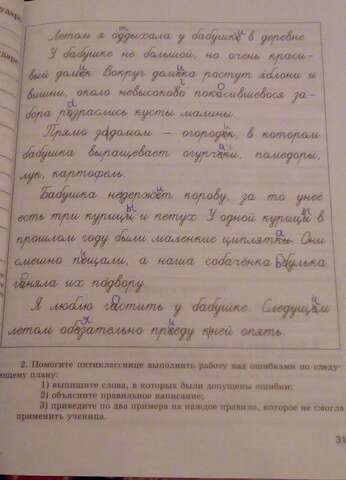 Летом я оддыхала у бабушке в деревне
У бабушке не большой, но очень краси-
вый домек. Вокруг домека ростут яблони и
вишни, около невысоково покасившевося за-
бора розраслись кусты малины.
Прямо задомом – огородек, в котором
бабушка выращевает огурчеки, помедоры,
лук, картофель.
Бабушка недержет корову, за то унее
есть три курици и петух. У одной курици в
прошлом году были маленкие циплятки. Они
смешно пещали, а наша собаченка Ббулька
ганяла их подвору.
Я люблю гостить у бабушке. Следущем
летом обезательно преду кней опять.
2. Помогите пятикласснице выполнить работу над ошибками по следу-
ющему плану:
1) выпишите слова, в которых были допущены ошибки;
2) объясните правильное написание;
3) приведите по два примера на каждое правило, которое не смогла
применить ученица.
31